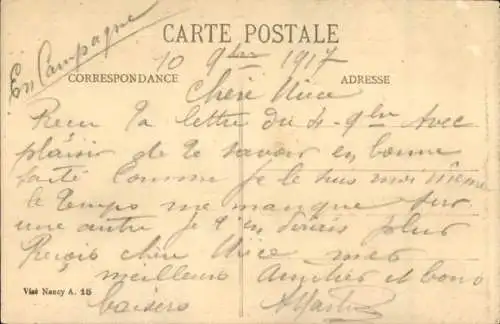 En Campagne
CARTE POSTALE
10 9bre 1917
CORRESPONDANCE
ADRESSE
Chère Nièce
Reçu ta lettre du 4-9bre avec
plaisir de te savoir en bonne
santé comme je le suis moi même
le temps me manque sur
une autre je t'en dirais plus
Reçois chère Nièce mes
meilleurs Amitiés et bons
baisers
Visé Nancy A. 15